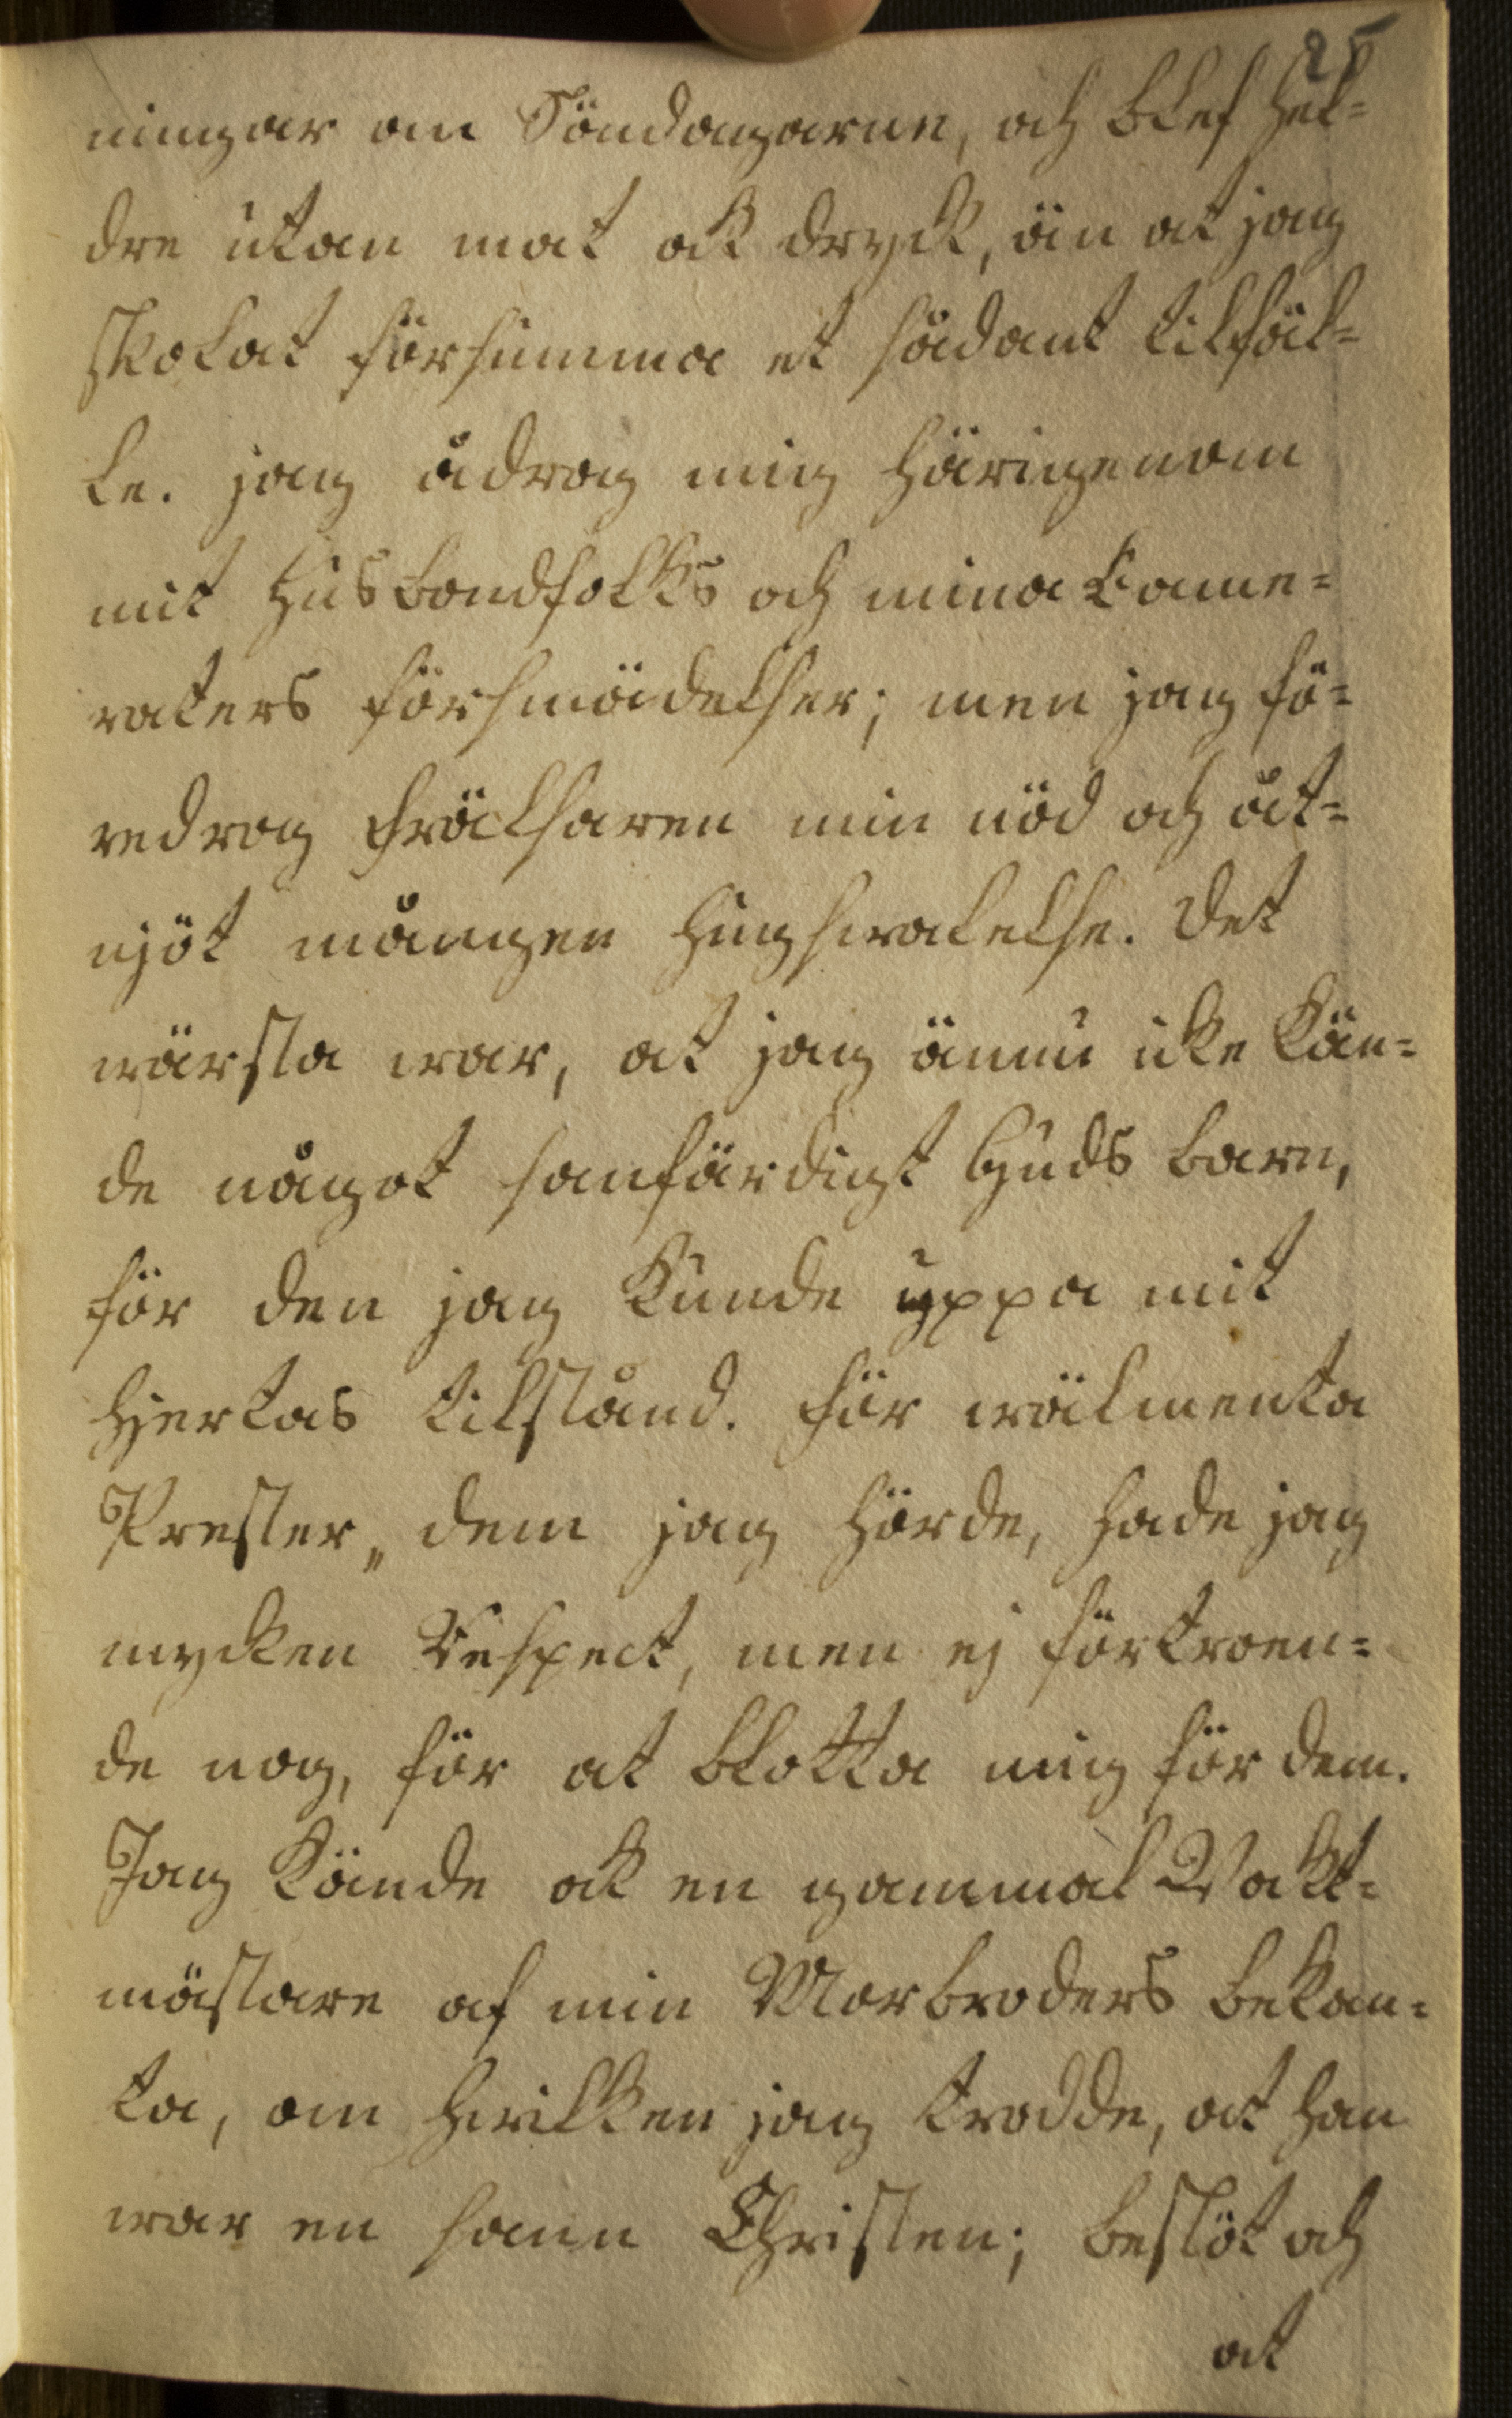 25
ningar om Söndagarne, och blef hel=
dre utan mat ok dryck, än at jag
skolat försumma et sådant tilfäl=
le. jag ådrog mig härigenom
mit Husbondfolks och mina Came=
raters försmädelser; men jag fö=
redrog Frälsaren min nöd och åt=
njöt mången hugswalelse. Det
wärsta war, at jag ännu icke kän=
de något sanfärdigt Guds barn,
för den jag kunde yppa mit
hjertas tilstånd. För wälmenta
Prester, dem jag hörde, hade jag
mycken Respect, men ej förtroen=
de nog, för at blotta mig för dem.
Jag kände ok en gammal Wakt=
mästare af min Morbroders bekan=
ta, om hwilken jag trodde, at han
war en sann Christen; beslöt och
at